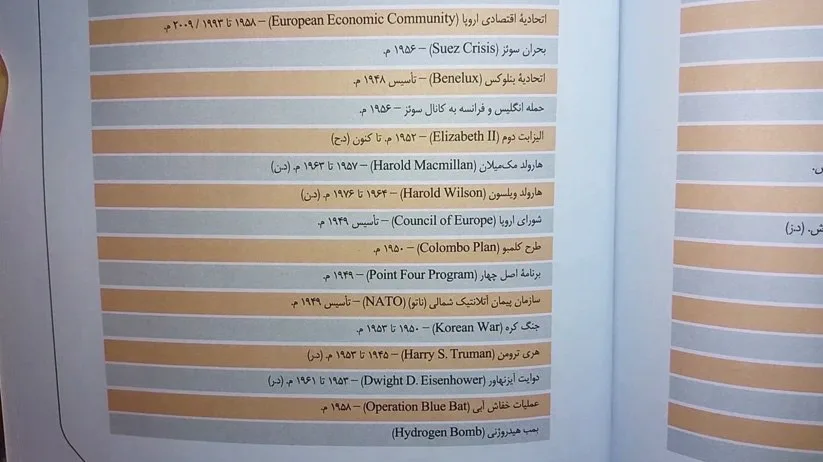 اتحادیهٔ اقتصادی اروپا (European Economic Community) – ۱۹۵۸ تا ۱۹۹۳ / ۲۰۰۹ م.
بحران سوئز (Suez Crisis) – ۱۹۵۶ م.
اتحادیهٔ بنلوکس (Benelux) – تأسیس ۱۹۴۸ م.
حمله انگلیس و فرانسه به کانال سوئز – ۱۹۵۶ م.
الیزابت دوم (Elizabeth II) – ۱۹۵۲ م. تا کنون (د.ح)
هارولد مک‌میلان (Harold Macmillan) – ۱۹۵۷ تا ۱۹۶۳ م. (د.ن)
هارولد ویلسون (Harold Wilson) – ۱۹۶۴ تا ۱۹۷۶ م. (د.ن)
شورای اروپا (Council of Europe) – تأسیس ۱۹۴۹ م.
طرح کلمبو (Colombo Plan) – ۱۹۵۰ م.
برنامهٔ اصل چهار (Point Four Program) – ۱۹۴۹ م.
سازمان پیمان آتلانتیک شمالی (ناتو) (NATO) – تأسیس ۱۹۴۹ م.
جنگ کره (Korean War) – ۱۹۵۰ تا ۱۹۵۳ م.
هری ترومن (Harry S. Truman) – ۱۹۴۵ تا ۱۹۵۳ م. (د.ر)
دوایت آیزنهاور (Dwight D. Eisenhower) – ۱۹۵۳ تا ۱۹۶۱ م. (د.ر)
عملیات خفاش آبی (Operation Blue Bat) – ۱۹۵۸ م.
بمب هیدروژنی (Hydrogen Bomb)
(د.ز)